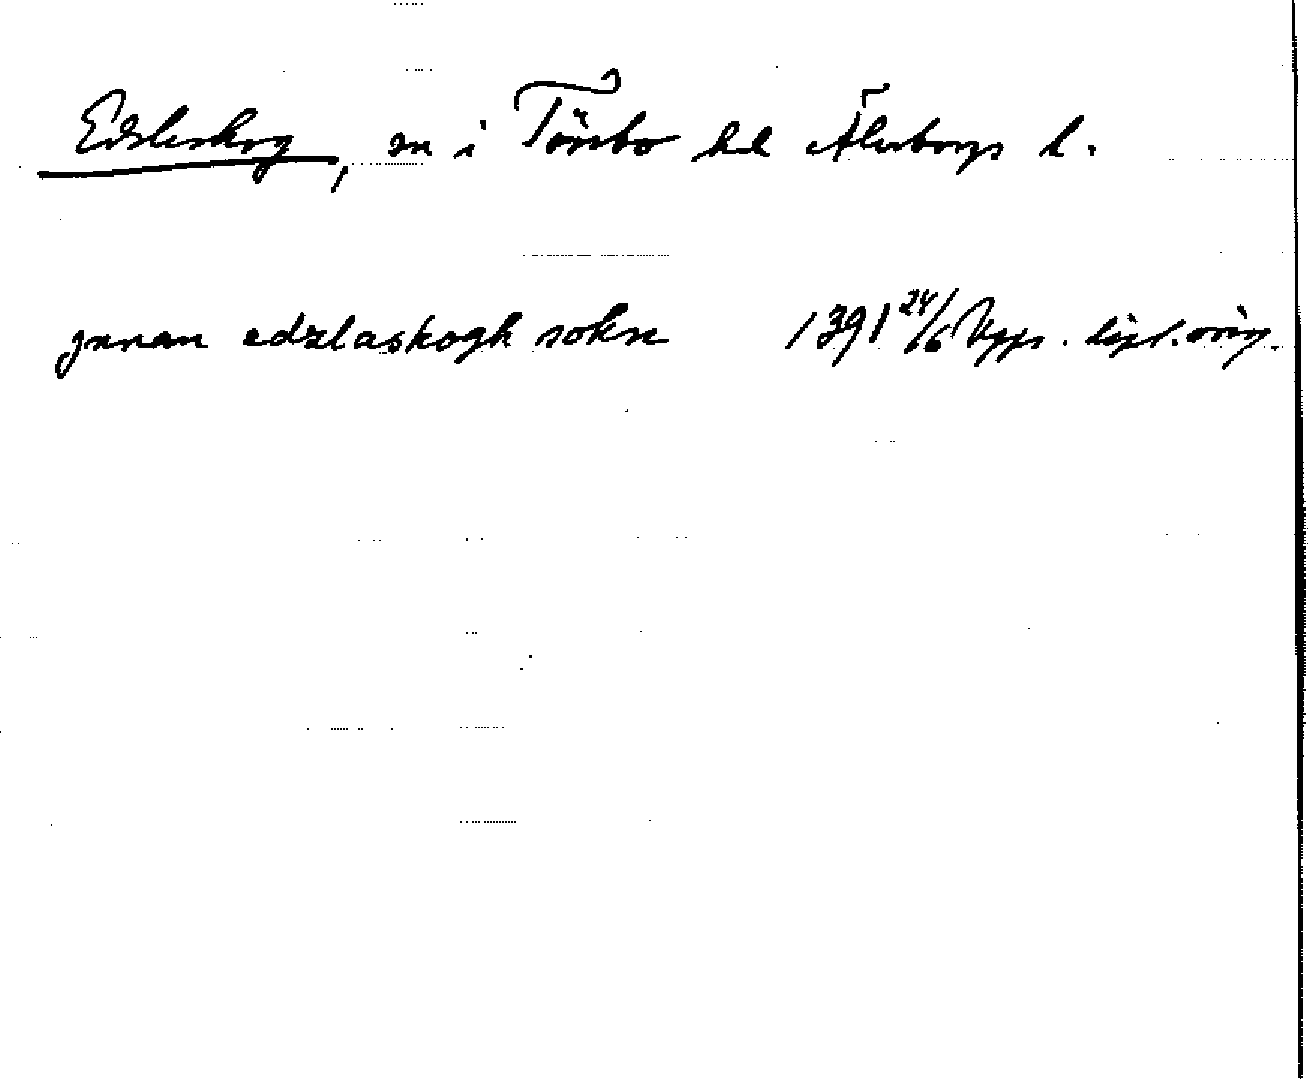 Edsleskog, sn i Tössbo hd Älvsborgs l.
jnnan edzlaskogh sokn 1391 24/6 Upps. dipl. orig.